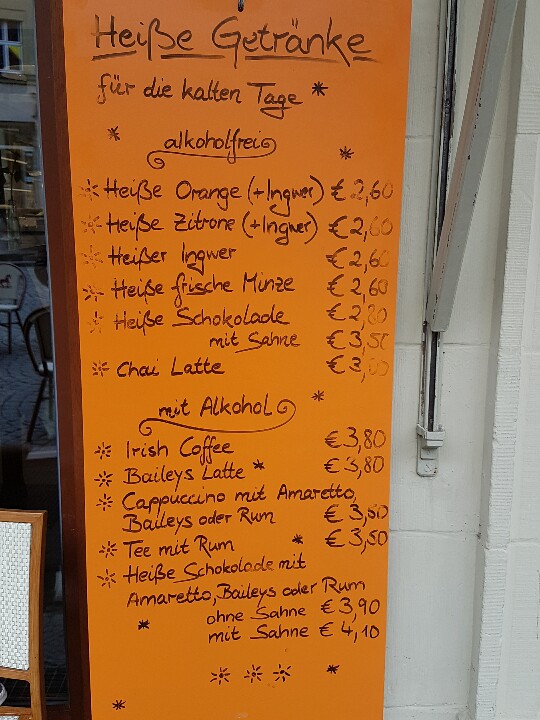 Heiße Getränke
für die kalten Tage
alkoholfrei
Heiße Orange (+Ingwer) € 2,60
Heiße Zitrone (+Ingwer) € 2,60
Heißer Ingwer € 2,60
Heiße frische Minze € 2,60
Heiße Schokolade € 2,80
mit Sahne € 3,50
Chai Latte € 3,00
mit Alkohol
Irish Coffee € 3,80
Baileys Latte € 3,80
Cappuccino mit Amaretto,
Baileys oder Rum € 3,50
Tee mit Rum € 3,50
Heiße Schokolade mit
Amaretto, Baileys oder Rum
ohne Sahne € 3,90
mit Sahne € 4,10